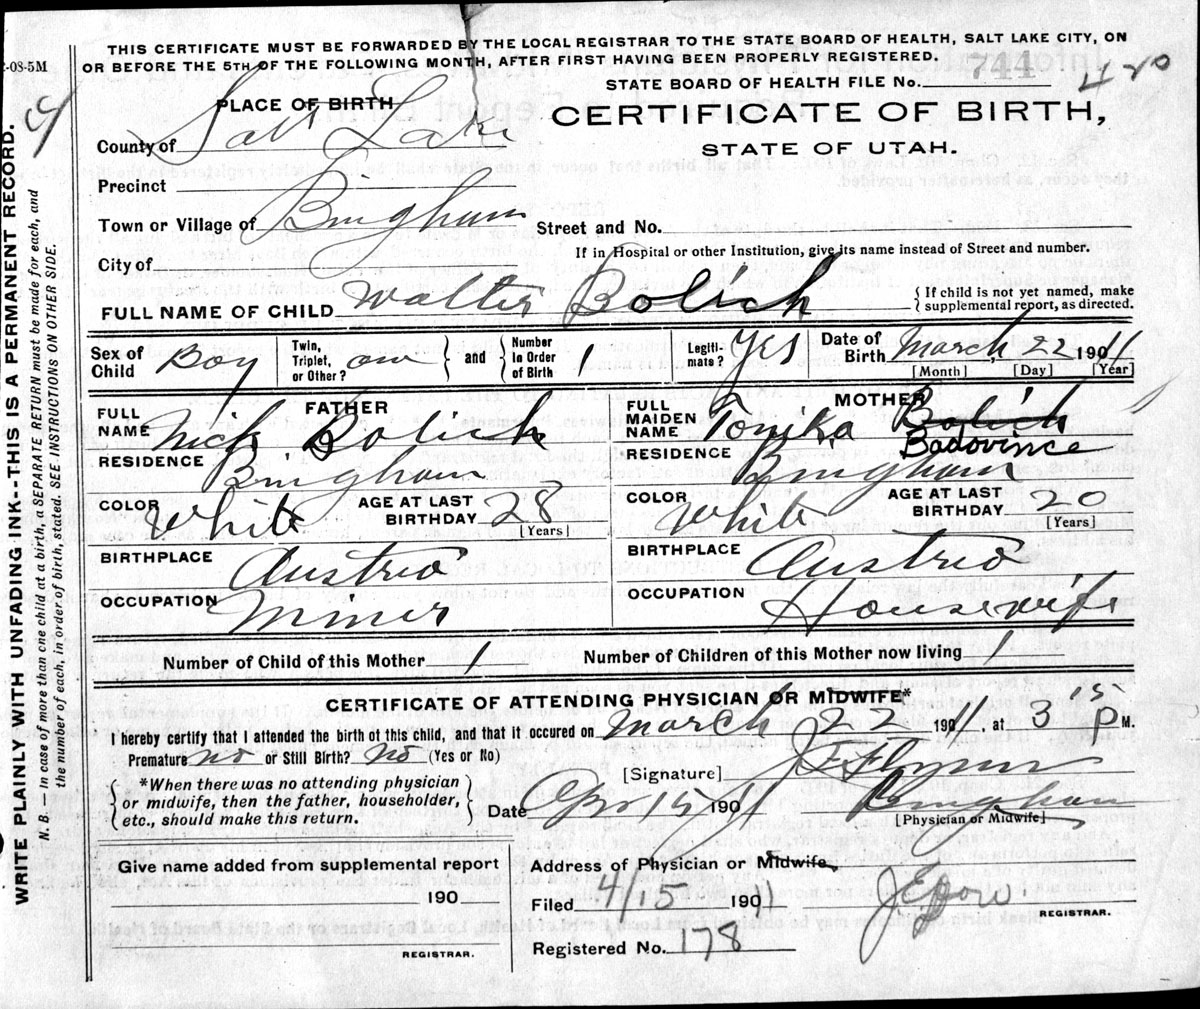 THIS CERTIFICATE MUST BE FORWARDED BY THE LOCAL REGISTRAR TO THE STATE BOARD OF HEALTH, SALT LAKE CITY, ON
OR BEFORE THE 5TH OF THE FOLLOWING MONTH, AFTER FIRST HAVING BEEN PROPERLY REGISTERED.
-08-5M
STATE BOARD OF HEALTH FILE No. 744
PLACE OF BIRTH
CERTIFICATE OF BIRTH,
STATE OF UTAH.
County of Salt Lake
Precinct
Town or Village of Bingham
Street and No.
If in Hospital or other Institution, give its name instead of Street and number.
City of
FULL NAME OF CHILD Walter Bolich
{ If child is not yet named, make
supplemental report, as directed.
Sex of Child Boy
Twin, Triplet, or Other? one } and { Number In Order of Birth 1
Legiti- mate? Yes
Date of Birth March 22 1911
[Month] [Day] [Year]
FATHER
FULL NAME Nick Bolich
RESIDENCE Bingham
COLOR White AGE AT LAST BIRTHDAY 28
[Years]
BIRTHPLACE Austria
OCCUPATION Miner
MOTHER
FULL MAIDEN NAME Tonika Bolich
Badovince
RESIDENCE Bingham
COLOR White AGE AT LAST BIRTHDAY 20
[Years]
BIRTHPLACE Austria
OCCUPATION Housewife
Number of Child of this Mother 1
Number of Children of this Mother now living 1
CERTIFICATE OF ATTENDING PHYSICIAN OR MIDWIFE*
I hereby certify that I attended the birth of this child, and that it occured on March 22 1911 at 3 15 P M.
Premature? no or Still Birth? no (Yes or No)
*When there was no attending physician
or midwife, then the father, householder,
etc., should make this return.
[Signature]
Date Apr 15 1911 Bingham
[Physician or Midwife]
Give name added from supplemental report
190
REGISTRAR.
Address of Physician or Midwife
Filed 4 15 1901
REGISTRAR.
Registered No. 178
WRITE PLAINLY WITH UNFADING INK--THIS IS A PERMANENT RECORD.
N. B. In case of more than one child at a birth, a SEPARATE RETURN must be made for each, and
the number of each, in order of birth, stated. SEE INSTRUCTIONS ON OTHER SIDE.